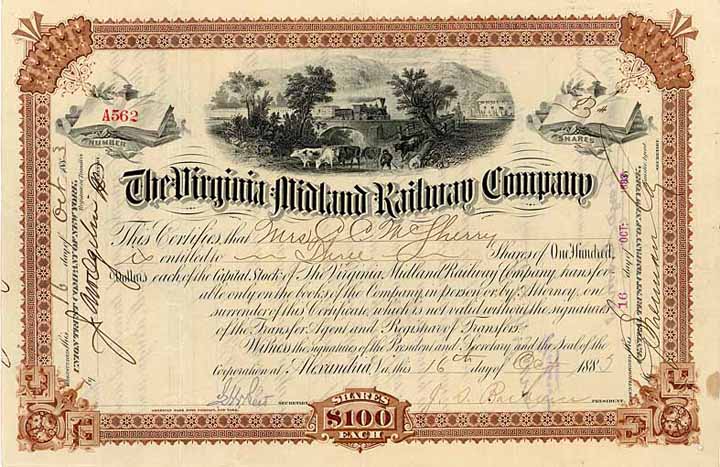 A562
NUMBER
3
SHARES
The Virginia Midland Railway Company
This Certifies, that Mrs. C McSherry
is entitled to Three Shares of One Hundred
Dollars each of the Capital Stock of The Virginia Midland Railway Company, transfer-
able only on the books of the Company in person or by Attorney, on
surrender of this Certificate, which is not valid without the signatures
of the Transfer Agent and Registrar of Transfers.
Witness the signatures of the President and Secretary and the Seal of the
Corporation at Alexandria Va, this 16th day of Oct 1883
SECRETARY.
PRESIDENT.
AMERICAN BANK NOTE COMPANY, NEW YORK.
SHARES
$100
EACH
REGISTERED this 16 day of Oct 1883
CENTRAL TRUST COMPANY OF NEW YORK,
by
16 day of OCT.
CENTRAL TRUST COMPANY OF NEW YORK,
by